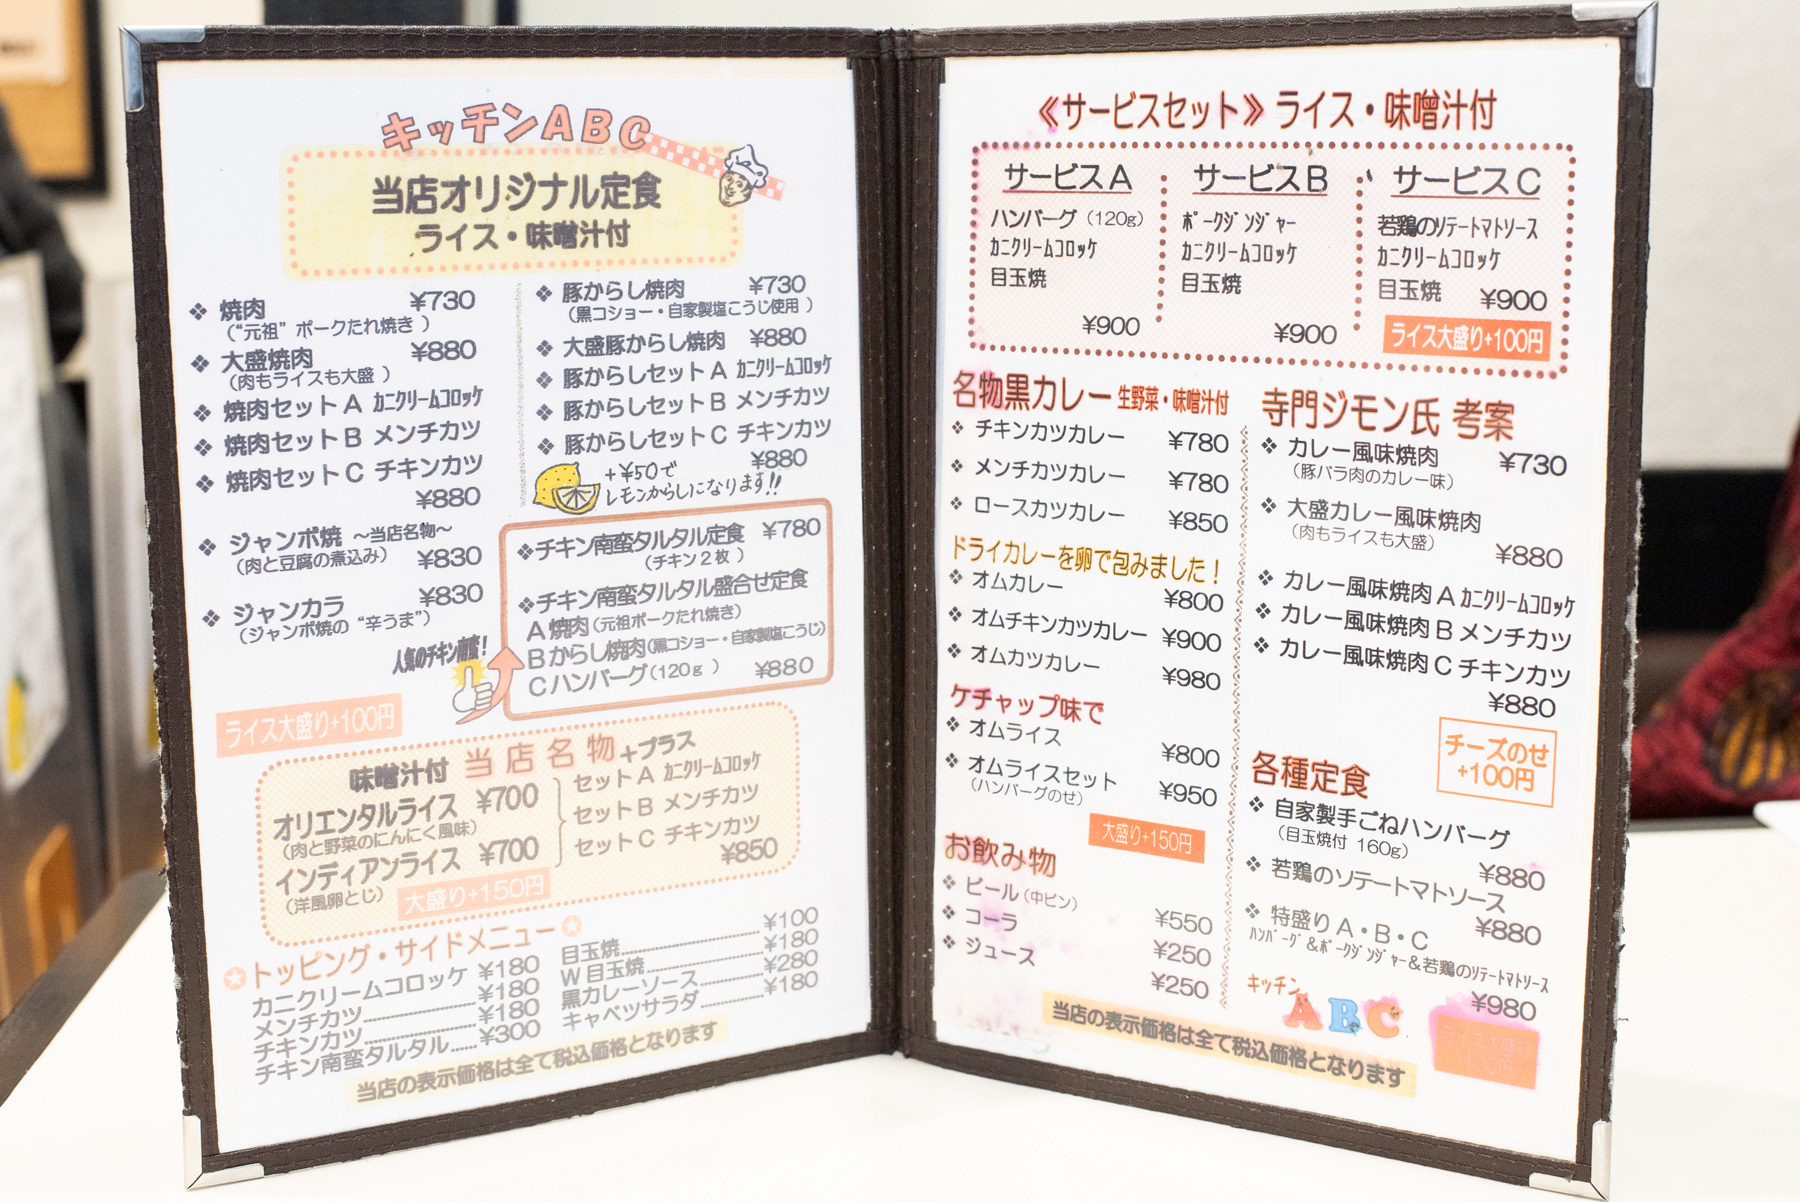 キッチンABC
当店オリジナル定食
ライス・味噌汁付
❖ 焼肉 ¥730
（“元祖”ポークたれ焼き）
❖ 大盛焼肉 ¥880
（肉もライスも大盛）
❖ 焼肉セットA カニクリームコロッケ
❖ 焼肉セットB メンチカツ
❖ 焼肉セットC チキンカツ
¥880
❖ ジャンボ焼 ～当店名物～
（肉と豆腐の煮込み） ¥830
❖ ジャンカラ ¥830
（ジャンボ焼の“辛うま”）
❖ 豚からし焼肉 ¥730
（黒コショー・自家製塩こうじ使用）
❖ 大盛豚からし焼肉 ¥880
❖ 豚からしセットA カニクリームコロッケ
❖ 豚からしセットB メンチカツ
❖ 豚からしセットC チキンカツ
¥880
+¥50で
レモンからしになります!!
❖チキン南蛮タルタル定食 ¥780
（チキン2枚）
❖チキン南蛮タルタル盛合せ定食
A 焼肉（元祖ポークたれ焼き）
B からし焼肉（黒コショー・自家製塩こうじ）
C ハンバーグ（120g） ¥880
人気のチキン南蛮!
ライス大盛り+100円
味噌汁付 当店名物+プラス
オリエンタルライス ¥700
（肉と野菜のにんにく風味）
インディアンライス ¥700
（洋風卵とじ） 大盛り+150円
セットA カニクリームコロッケ
セットB メンチカツ
セットC チキンカツ
¥850
✪トッピング・サイドメニュー✪
カニクリームコロッケ ¥180
メンチカツ............¥180
チキンカツ............¥180
チキン南蛮タルタル......¥300
目玉焼............¥100
W目玉焼............¥180
黒カレーソース......¥280
キャベツサラダ......¥180
当店の表示価格は全て税込価格となります
《サービスセット》ライス・味噌汁付
サービスA
ハンバーグ（120g）
カニクリームコロッケ
目玉焼
¥900
サービスB
ポークジンジャー
カニクリームコロッケ
目玉焼
¥900
サービスC
若鶏のソテートマトソース
カニクリームコロッケ
目玉焼 ¥900
ライス大盛り+100円
名物黒カレー 生野菜・味噌汁付
❖ チキンカツカレー ¥780
❖ メンチカツカレー ¥780
❖ ロースカツカレー ¥850
ドライカレーを卵で包みました！
❖ オムカレー ¥800
❖ オムチキンカツカレー ¥900
❖ オムカツカレー ¥980
ケチャップ味で
❖ オムライス ¥800
❖ オムライスセット ¥950
（ハンバーグのせ）
大盛り+150円
お飲み物
❖ ビール（中ビン） ¥550
❖ コーラ ¥250
❖ ジュース ¥250
寺門ジモン氏 考案
❖ カレー風味焼肉 ¥730
（豚バラ肉のカレー味）
❖ 大盛カレー風味焼肉
（肉もライスも大盛） ¥880
❖ カレー風味焼肉A カニクリームコロッケ
❖ カレー風味焼肉B メンチカツ
❖ カレー風味焼肉C チキンカツ
¥880
チーズのせ
+100円
各種定食
❖ 自家製手ごねハンバーグ
（目玉焼付 160g） ¥880
❖ 若鶏のソテートマトソース
¥880
❖ 特盛りA・B・C
ハンバーグ＆ポークジンジャー＆若鶏のソテートマトソース
¥980
キッチン
ABC
当店の表示価格は全て税込価格となります